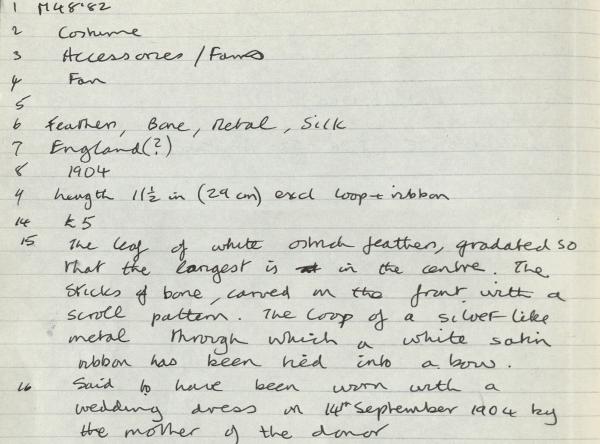 1 M48'82
2 Costume
3 Accessories / Fans
4 Fan
5
6 Feathers, Bone, Metal, Silk
7 England (?)
8 1904
9 Length 11½ in (29 cm) excl loop + ribbon
14 £5
15 The leaf of white ostrich feathers, gradated so
that the largest is in the centre. The
sticks of bone, carved on the front with a
scroll pattern. The loop of a silver like
metal through which a white satin
ribbon has been tied into a bow.
16 Said to have been worn with a
wedding dress on 14th September 1904 by
the mother of the donor